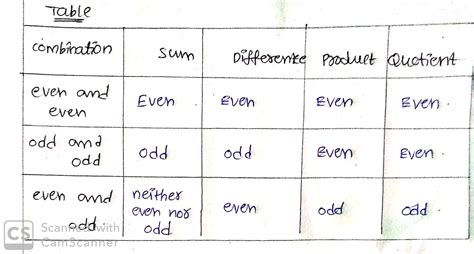 Table
combination Sum Difference Product Quotient
even and even Even Even Even Even.
odd and odd odd odd Even Even.
even and odd. neither even nor odd even odd odd.
CS Scanned with CamScanner